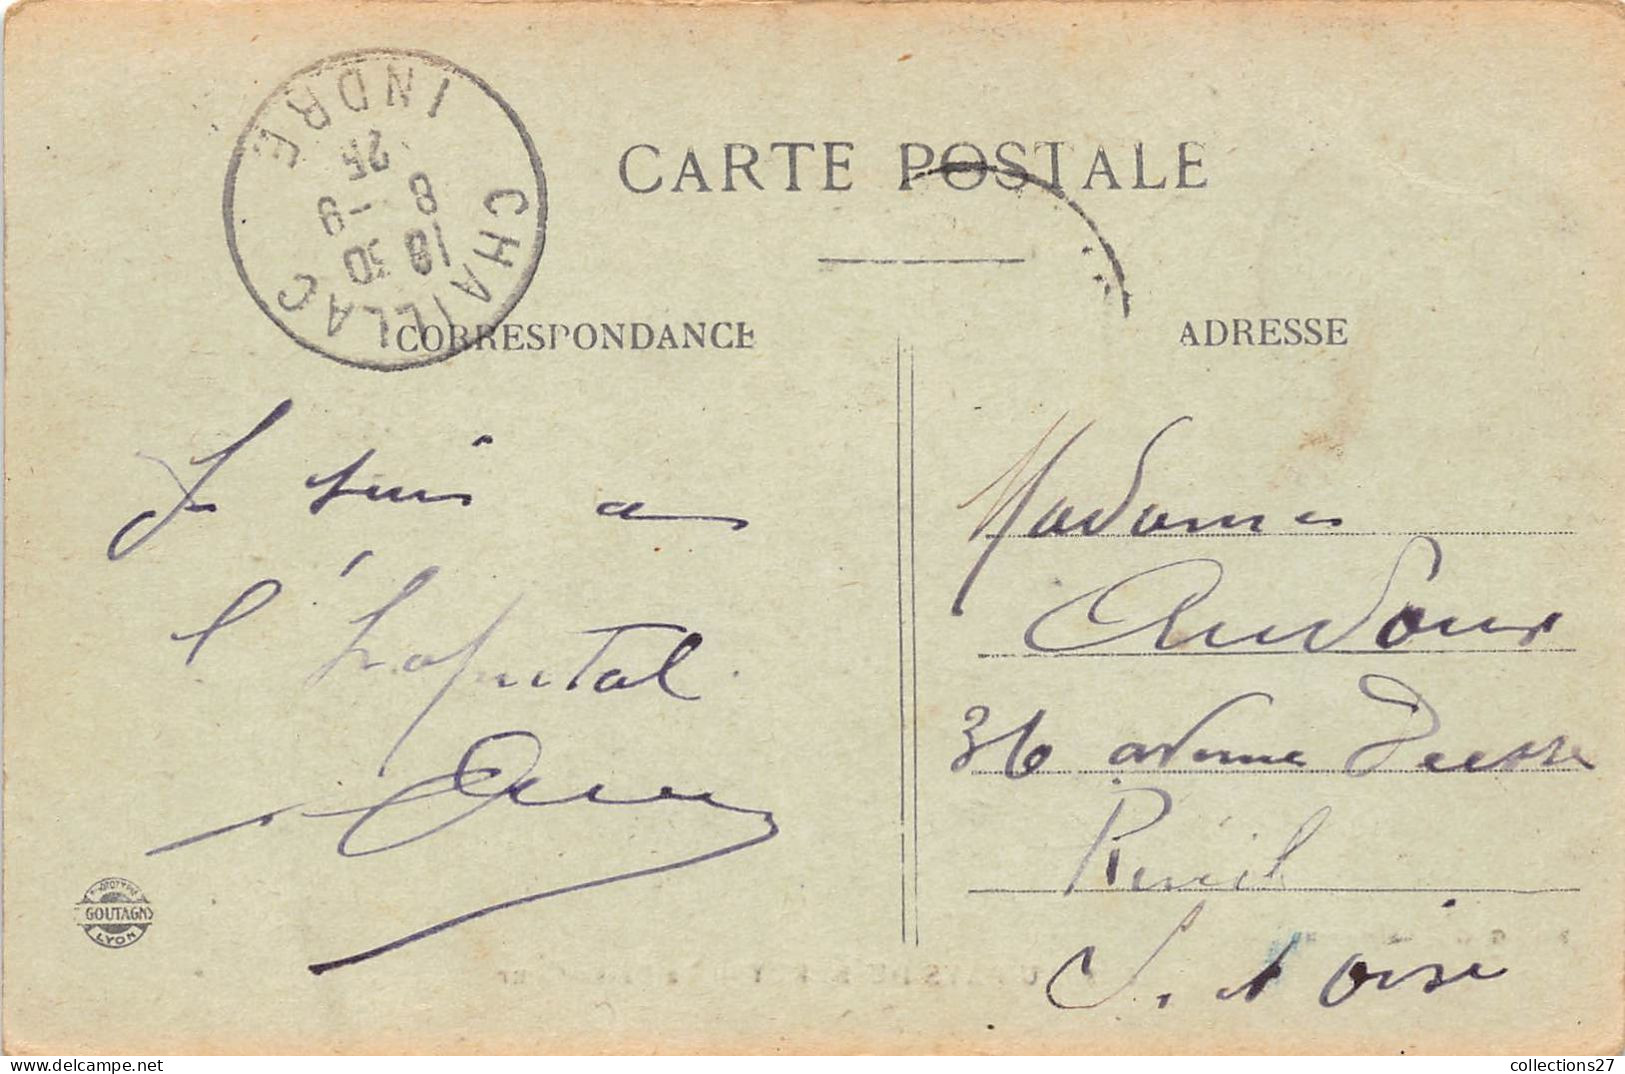 CARTE POSTALE
INDRE
CHAILLAC
18 30
8 -9
25
CORRESPONDANCE
Je suis a
l'hopital
ADRESSE
Madame
Audoux
36 avenue
Rueil
S. et Oise
GOUTAGNY
LYON
collections27